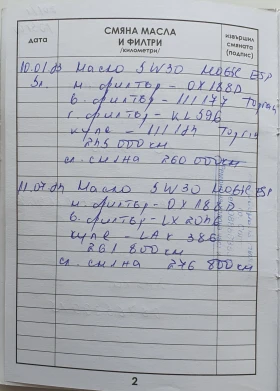 СМЯНА МАСЛА
И ФИЛТРИ
/километри/
дата
извършил
смяната
(подпис)
Масло 5W30 MOБIL ESP
м. филтър - OX188D
в. филтър - 111177
г. филтър - KL596
купе - 
245 000 км
сл. смяна 260 000 км
Масло 5W30 MOБIL ESP
м. филтър - OX188D
в. филтър - LX2046
купе LAK 386
261 800 км
сл. смяна 276 800 км
2